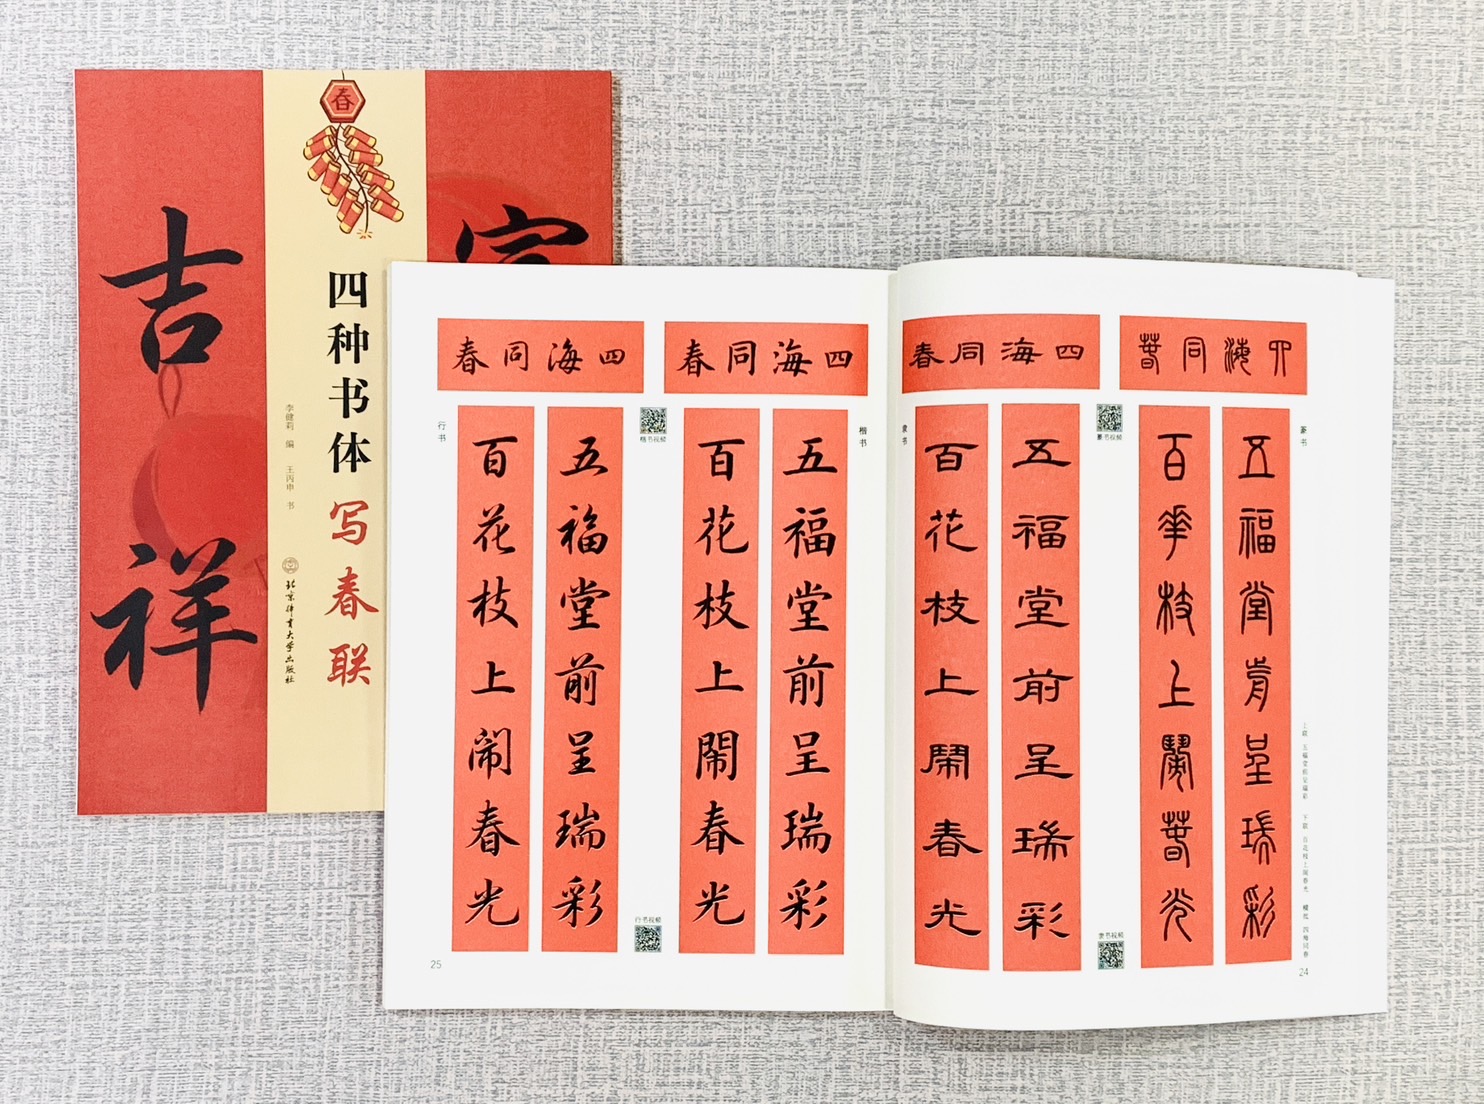 春
吉祥
四种书体
写春联
李健莉 编 王丙申 书
北京体育大学出版社
四海同春
四海同春
四海同春
四海同春
篆书
五福堂前呈瑞彩
百花枝上闹春光
篆书视频
隶书
五福堂前呈瑞彩
百花枝上鬧春光
隶书视频
上联 五福堂前呈瑞彩 下联 百花枝上闹春光 横批 四海同春
24
楷书
五福堂前呈瑞彩
百花枝上閙春光
楷书视频
行书
五福堂前呈瑞彩
百花枝上闹春光
行书视频
25